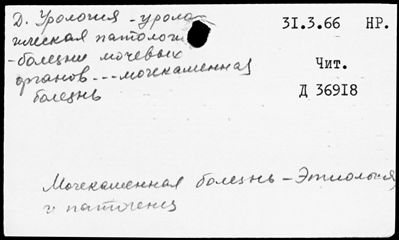 Д. Урология - уроло
гическая патологи
- болезни мочевых
органов --- мочекаменная
болезнь
31.3.66 НР.
Чит.
Д 36918
Мочекаменная болезнь - Этиология
и патогенез